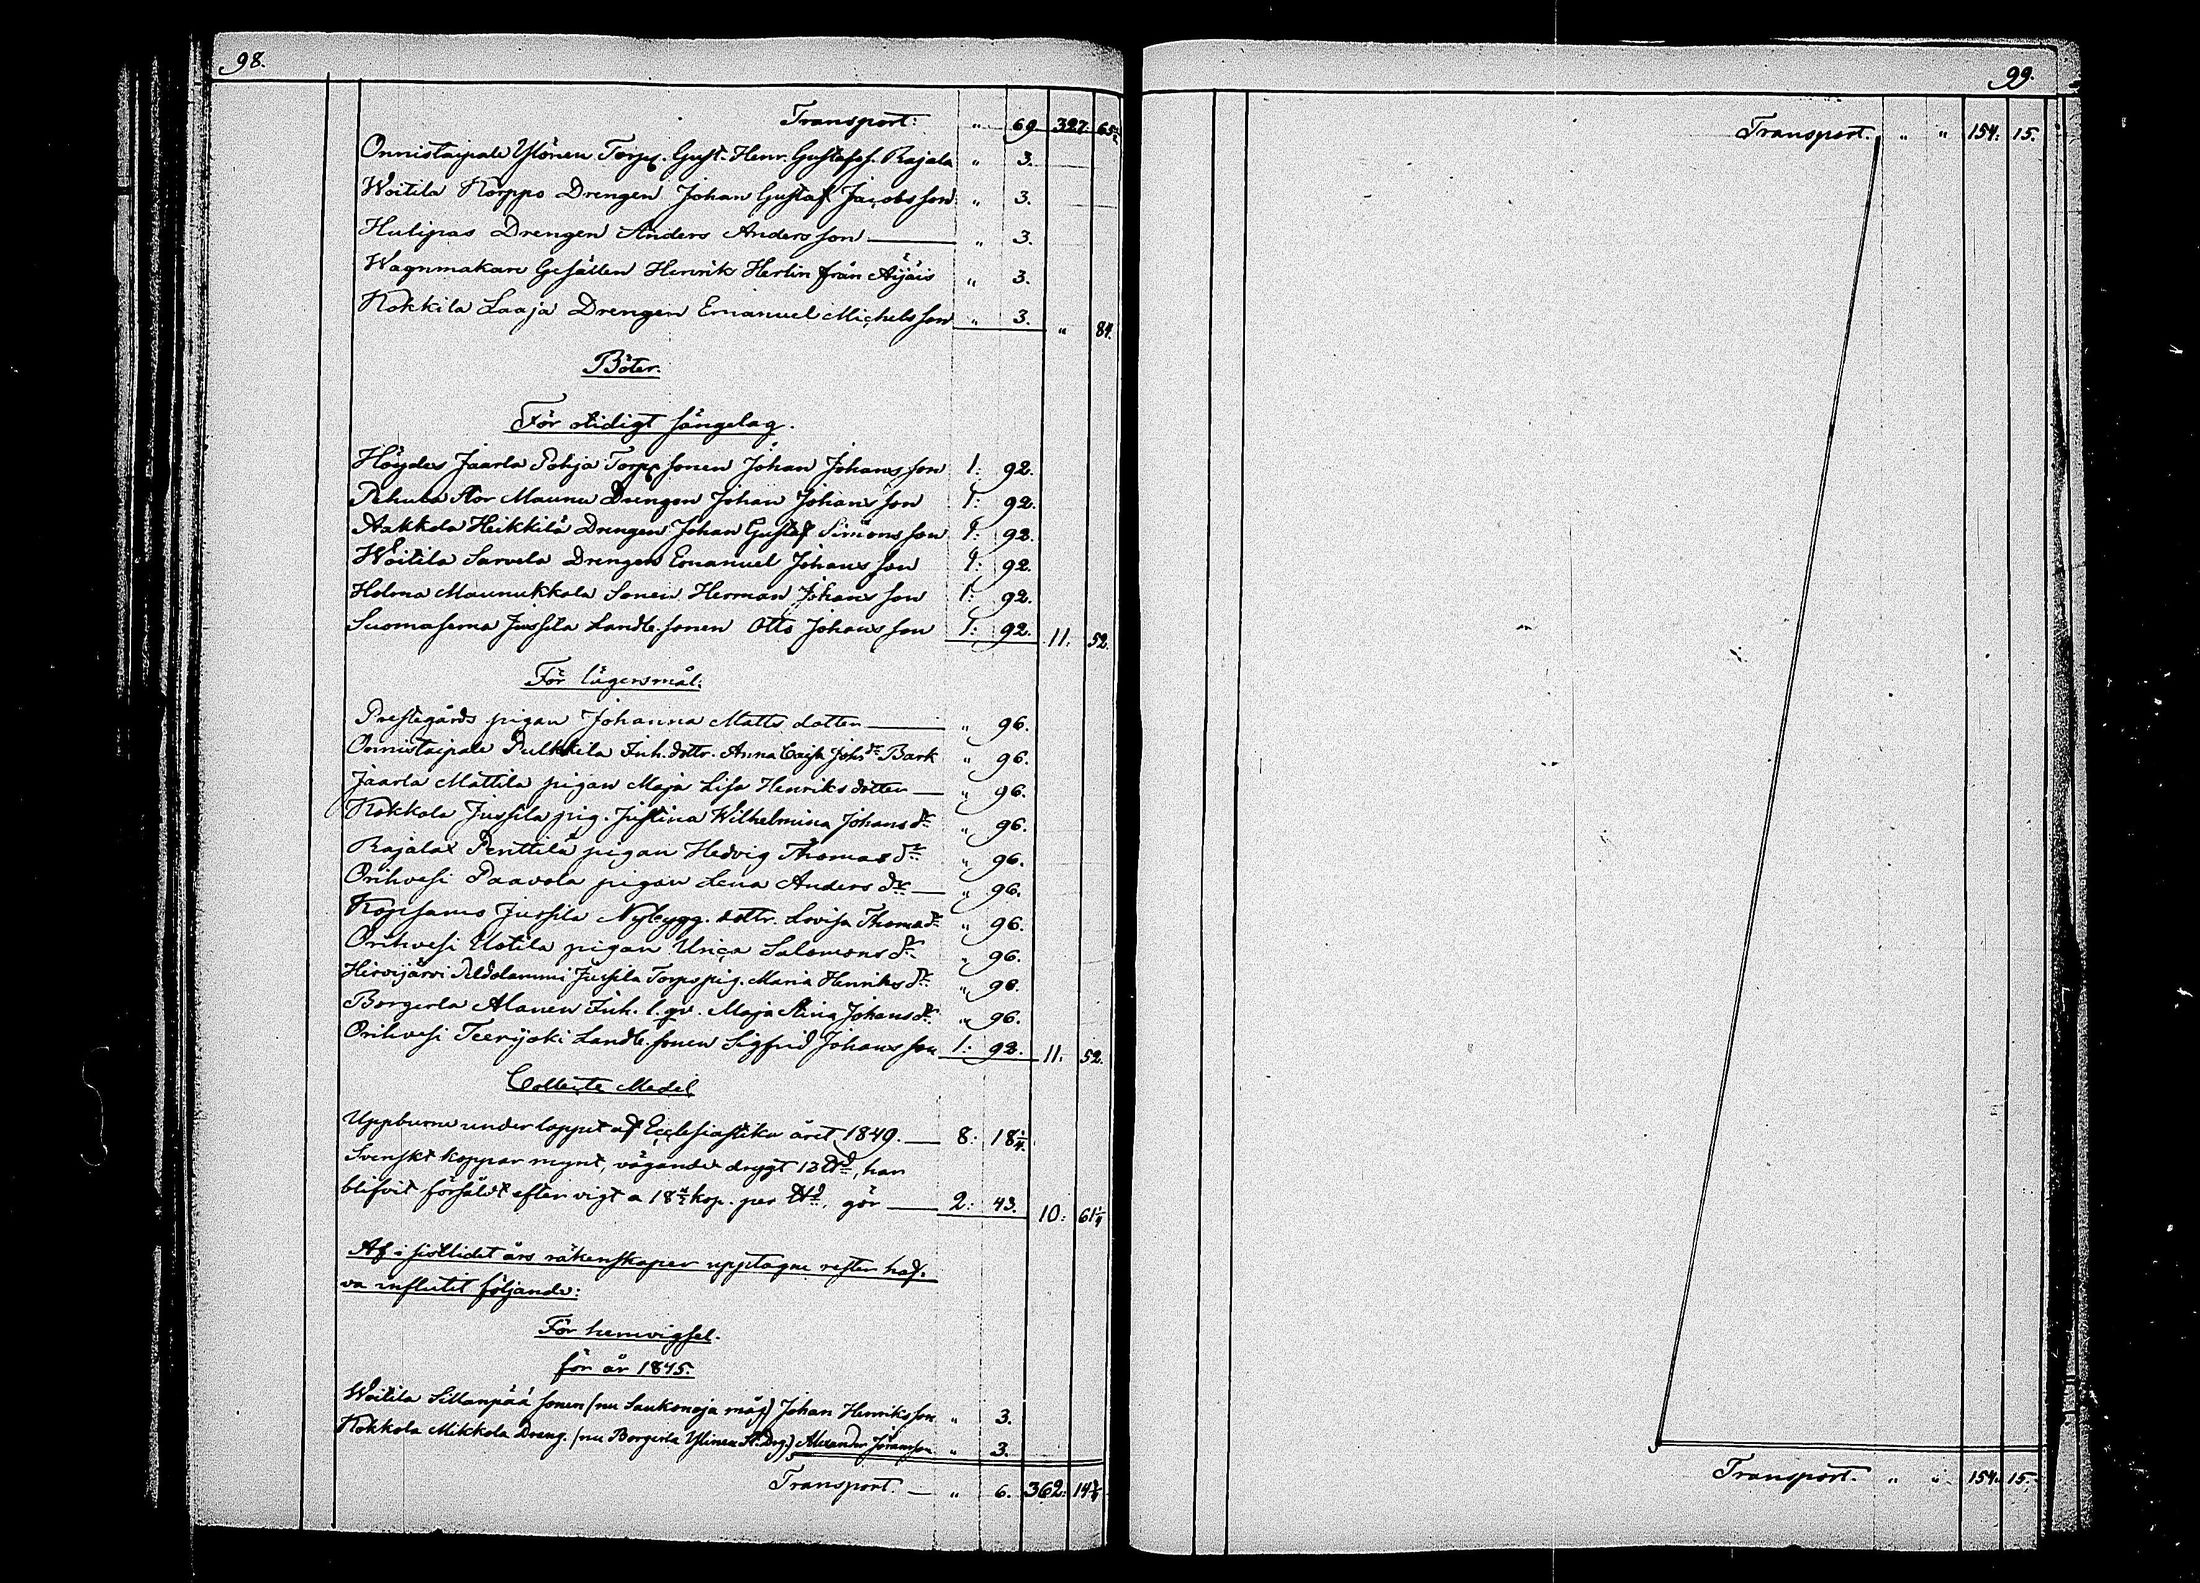 98.
Transport: " 69. 327: 65½
Onnistaipale Ylönen Torp. Gust. Henr. Gustafss. Rajala " 3.
Woitila Korppo Drengen Johan Gustaf Jacobsson " 3.
Hulipas Drengen Anders Andersson — " 3.
Wagnmakare Gesällen Henrik Herlin från Äijäis " 3.
Kokkila Laaja Drengen Emanuel Michelsson " 3. " 84.
Böter.
För otidigt sängelag.
Höydes Jaarla Pohja Torpsonen Johan Johansson 1: 92.
Stor Maunu Drengen Johan Johansson 1: 92.
Aakkola Heikkilä Drengen Johan Gustaf Simonsson 1: 92.
Woitila Sarvela Drengen Emanuel Johansson 1: 92.
Holma Maunukkala Sonen Herman Johansson 1: 92.
Suomaserna Jussila Landb. sonen Otto Johansson 1: 92. 11: 52.
För lägersmål.
Prestegårds pigan Johanna Matts dotter — " 96.
Onnistaipale Pulkkila Inh. dottr. Anna Cajsa Johs dr Bark " 96.
Jaarla Mattila pigan Maja Lisa Henriksdotter — " 96.
Kokkola Jussila pig. Justina Wilhelmina Johans dr " 96.
Rajalax Penttilä pigan Hedvig Thomas dr " 96.
Orihvesi Paavola pigan Lena Anders dr — " 96.
Kopsamo Jussila Nybygg. dottr. Lovisa Thoma dr " 96.
Orihvesi Uotila pigan Ulrica Salomons dr " 96.
Hirvijärvi Jussila Torps pig. Maria Henriks dr " 96.
Borgerla Alanen Inh. l. qv. Maja Stina Johans dr " 96.
Orihvesi Teerijoki Landb. sonen Sigfrid Johansson 1: 92. 11: 52.
Collecte Medel
Uppburne under loppet af Ecclesiastika året 1849. — 8: 18¼
Svenskt koppar mynt, vägande drygt 13 ℔, har
blifvit försåldt efter vigt a 18½ kop. per ℔, gör — 2: 43. 10: 61¼
Af i sistlidet års räkenskaper upptagne rester haf-
va influtit följande:
För hemvigsel.
för år 1845.
Woitila Sillanpää sonen (nu Saukonoja måg) Johan Henriksson " 3.
Kokkola Mikkola Dreng. (nu Borgerla Ylinen St. Drg.) Alexander Göransson " 3.
Transport. — " 6. 362: 14¾
99.
Transport. " " 154. 15.
Transport. " " 154. 15.